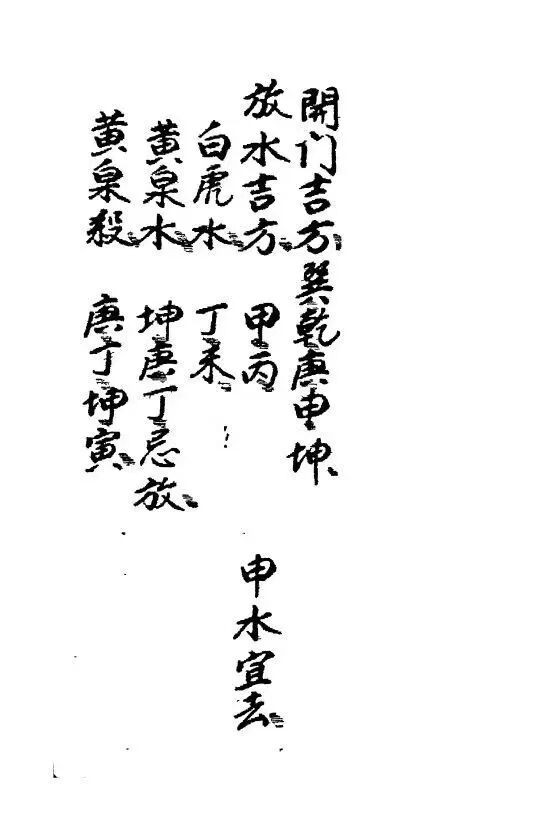 開门吉方巽乾庚申坤
放水吉方 甲丙 申水宜去
白虎水 丁未
黄泉水 坤庚丁忌放
黄泉殺 庚丁坤寅